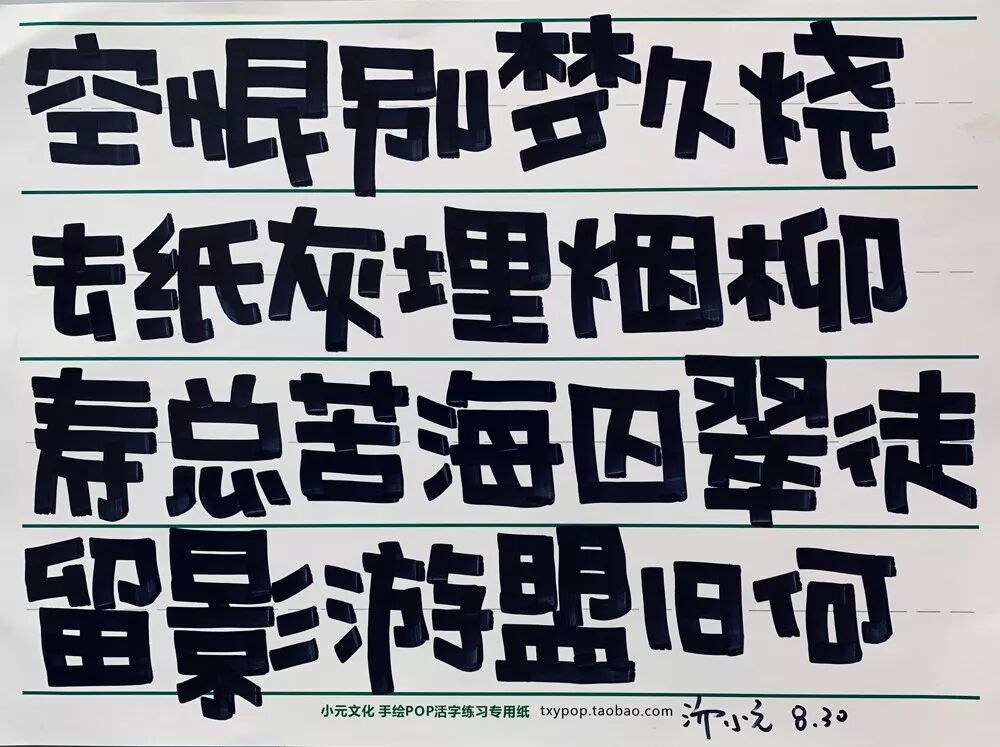 空恨别梦久烧
去纸灰埋烟柳
寿总苦海囚翠徒
留影游盟旧何
小元文化 手绘POP活字练习专用纸 txypop.taobao.com
小元 8.30